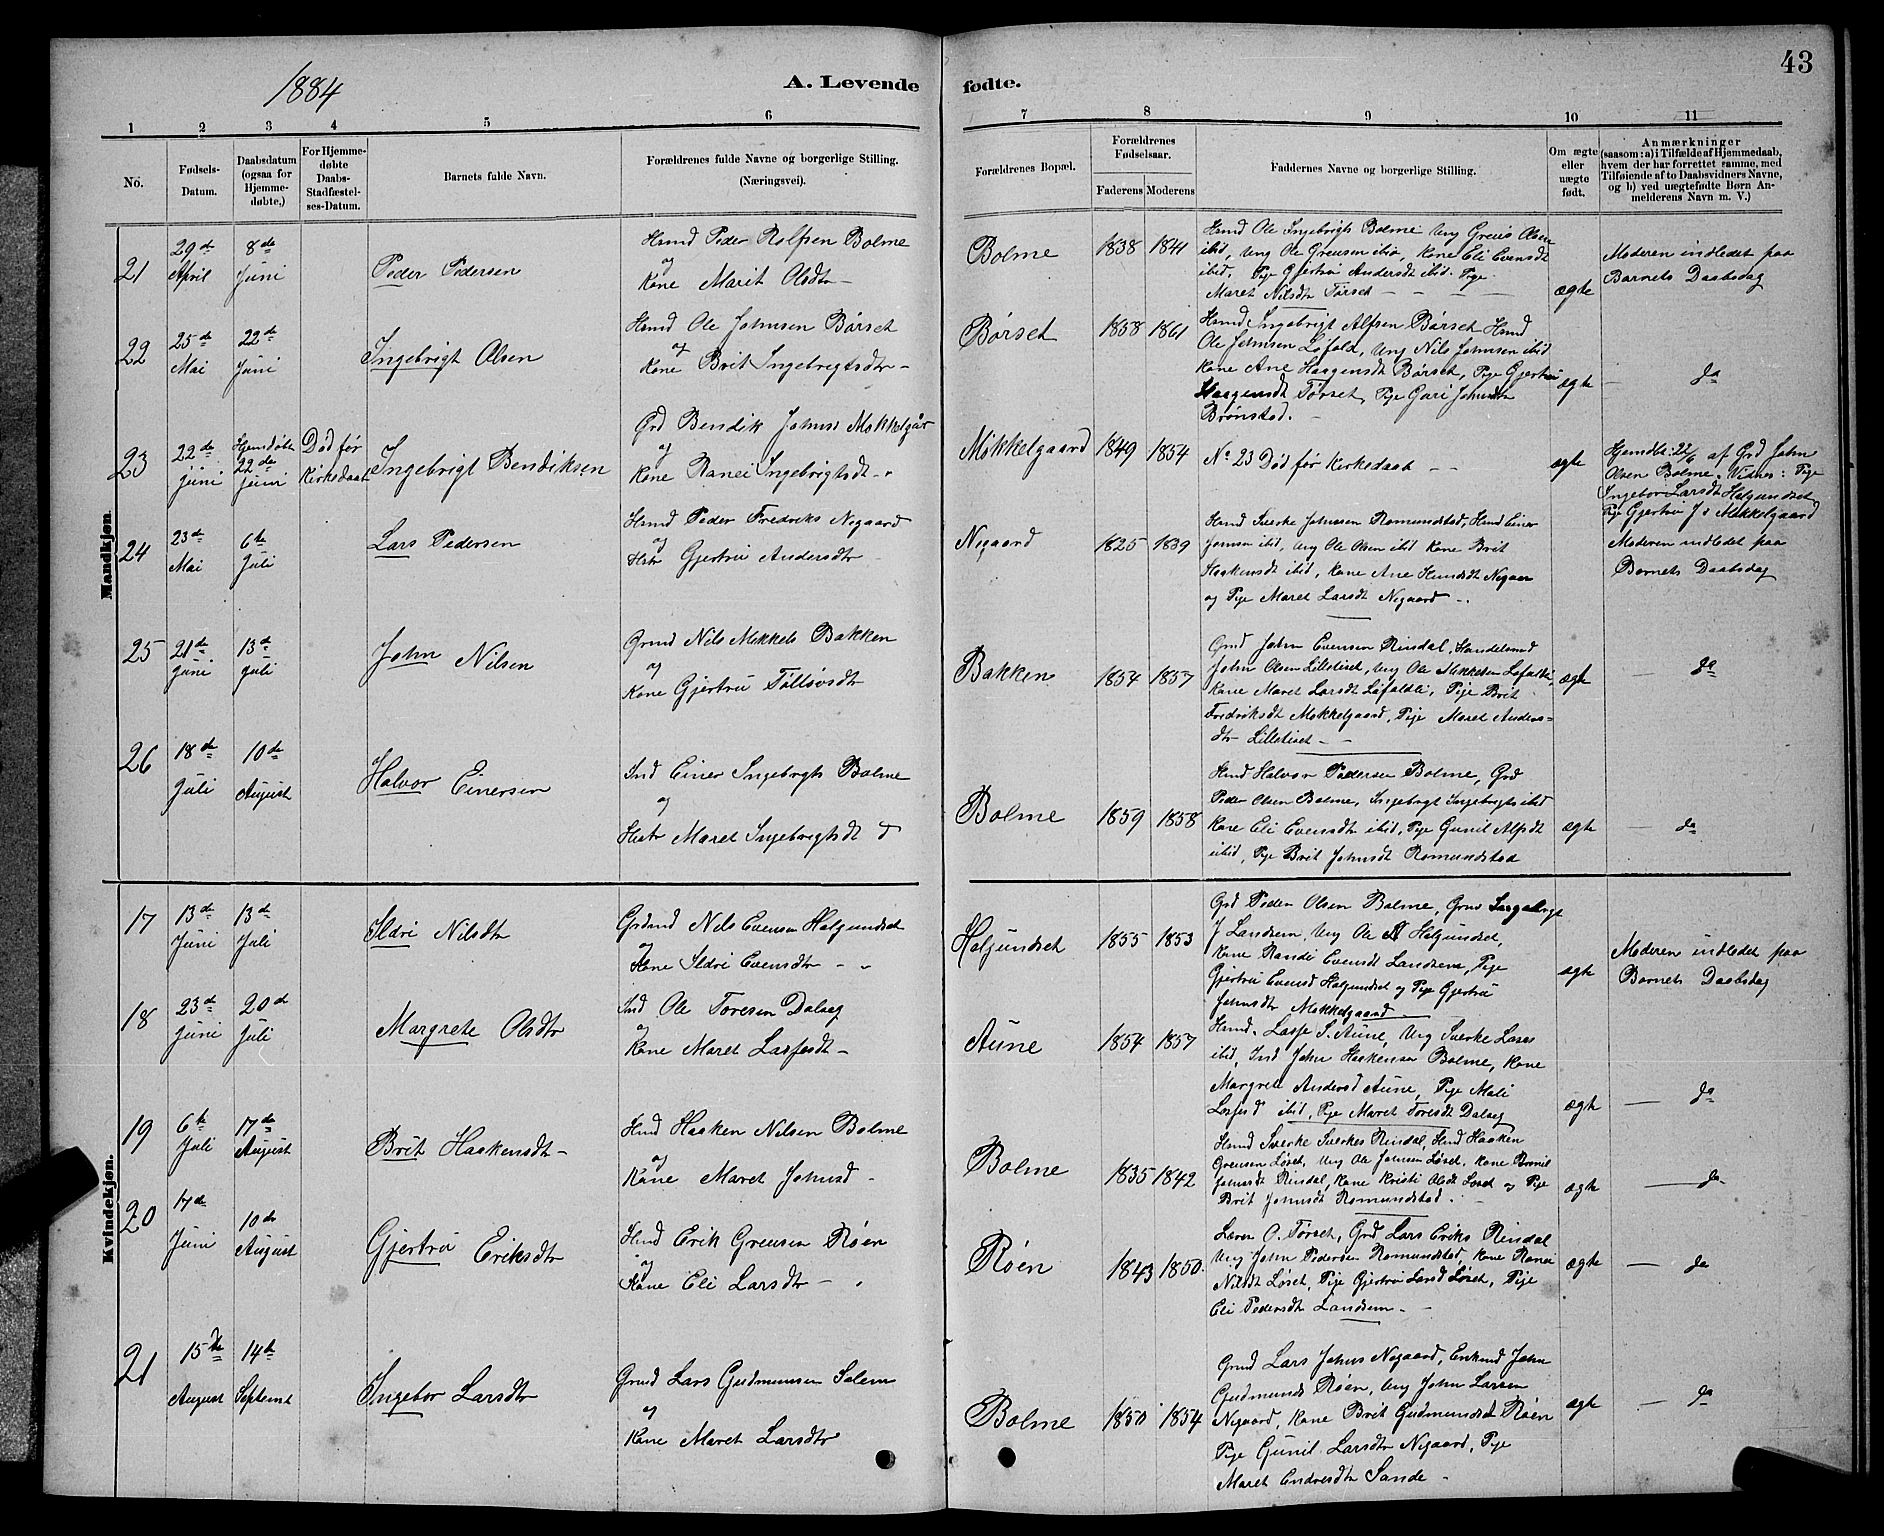 1884
A. Levende fødte.
43
1 2 3 4 5 6 7 8 9 10 11
No.
Fødsels-Datum.
Daabsdatum (ogsaa for Hjemme-døbte,)
For Hjemme-døbte Daabs-Stadfæstel-ses-Datum.
Barnets fulde Navn.
Forældrenes fulde Navne og borgerlige Stilling.
(Næringsvei).
Forældrenes Bopæl.
Forældrenes Fødselsaar.
Faderens Moderens
Faddernes Navne og borgerlige Stilling.
Om ægte eller uægte født.
Anmærkninger
(saasom: a) i Tilfælde af Hjemmedaab,
hvem der har forrettet samme, med
Tilføiende af to Daabsvidners Navne,
og b) ved uægtefødte Børn An-
melderens Navn m. V.)
Mandkjøn.
21
29de April
8de Juni
Peder Pedersen
Hmd Peder Rolfsen Bolme
og
Kone Marit Olsdtr -
Bolme
1838 1841
Hmd Ole Ingebrigts Bolme Ung Greis Olsen
ibid, Ung Ole Greusen ibid, Kone Eli Evensdt
ibid. Pige Gjertru Andersdt ibid. Pige
Maret Nilsdtr Tørset - - - -
ægte
Moderen indledet paa
Barnets Daabsdag
22
25de Mai
22de Juni
Ingebrigt Olsen
Hmd Ole Johnsen Børset
og
Kone Brit Ingebrigtsdtr -
Børset
1858 1861
Hmd Ingebrigt Alfsen Børset Hmd
Ole Johnsen Løfald, Ung Nils Johnsen ibid
Kone Ane Haagensdt Børset, Pige Gjertru
Haagensdt Tørset, Pige Guri Johnsdtr
Brønstad. -
ægte
- da
23
22de juni
Hjemdøbt 22de juni
Død før Kirkedaab
Ingebrigt Bendiksen
Grd Bendik Johns Mokkelgår
og
Kone Ranei Ingebrigtsdt -
Mokkelgaard
1849 1854
No 23 Død før Kirkedaab - -
ægte
Hjemdbt: 22/6 af Grd John
Olsen Bolme. Vidner: Pige
Ingebor Larsdt Halgundset
Pige Gjertru J. Mokkelgaard
24
23de Mai
6te Juli
Lars Pedersen
Hmd Peder Fredriks Nygaard
og
Hstr Gjertru Andersdtr -
Nygaard
1825 1839
Hmd Sverke Johnsen Romundstad, Hmd Einer
Jonsen ibid, Ung Ole Olsen ibid Kone Brit
Haakensdt ibid, Kone Ane Knudsdt Nygaar
og Pige Maret Larsdt Nygaard -
Moderen indledet paa
Barnets Daabsdag
25
21de juni
13de juli
John Nilsen
Grmd Nils Mikkels Bakken
og
Kone Gjertru Tøllevsdtr
Bakken
1854 1857
Grd John Evensen Rindal, Handelsmd
John Olsen Lilletiset, Ung Ole Mikkelsen Løfaldli,
Kone Maret Larsdt Løfaldli, Pige Brit
Fredriksdt Mokkelgaard, Pige Maret Anders-
dtr Lilletiset - -
ægte
- da
26
18de Juli
10de August
Halvor Einersen
Ind Einer Ingebrigts Bolme
og
Hstr Maret Ingebrigtsdt
Bolme
1859 1858
Hmd Halvor Pedersen Bolme, Grd
Peder Olsen Bolme, Ingebrigt Ingebrigts ibid
Kone Eli Evensdtr ibid, Pige Gunil Alfsdt
ibid, Pige Brit Johnsdt Romundstad
ægte
- da
Kvindekjøn.
17
13de Juni
13de Juli
Ildri Nilsdtr
Grdmd Nils Evensen Halgundset
og
Kone Ildri Evensdtr - -
Halgundset
1855 1853
Grd Peder Olsen Bolme, Grmd Ingebrigt
J Landsem, Ung Ole Halgundset,
Kone Randi Evensdt Landsem, Pige
Gjertru Evensd Halgundset og Pige Gjertru
Johnsdtr Mokkelgaard -
ægte
Moderen indledet paa
Barnets Daabsdag
18
23de Juni
20de Juli
Margrete Olsdtr
Ind Ole Toresen Dalaeg
og
Kone Maret Lassesdt -
Aune
1854 1857
Hmd. Lasse S. Aune, Ung Sverke Lases
ibid, Ind John Haakensen Bolme, Kone
Margrete Andersd Aune, Pige Mali
Lassesd ibid, Pige Maret Toresdt Dalaeg
ægte
- da
19
6te Juli
17de August
Brit Haakensdt -
Hmd Haaken Nilsen Bolme
og
Kone Maret Johnsd -
Bolme
1835 1842
Hmd Sverke Sverkes Rindal, Hmd Haaken
Greusen Løset, Ung Ole Johnsen Løset, Kone
Johnsdt Rindal, Kone Kristi Olsdt Løset og Pige
Brit Johnsdt Romundstad.
ægte
- da
20
Juni
10de August
Gjertru Eriksdtr
Hmd Erik Greusen Røen
og
Kone Eli Larsdtr - -
Røen
1843 1850
Laver O. Tørset, Grd Lars Eriks Rindal
Ung John Pedersen Romundstad, Kone Ranei
Nilsdt Løset, Pige Gjertru Larsd Løset, Pige
Eli Pedersdtr Landsem. -
ægte
- da
21
15de August
14de Septembt
Ingebor Larsdtr
Grmd Lars Gudmunsen Solem
og
Kone Maret Larsdtr
Bolme
1850 1854
Grmd Lars Johns Nygaard, Enkmd John
Gudmunds Røen, Ung John Larsen
Nygaard, Kone Brit Gudmundsdt Røen
Pige Gunil Larsdtr Nygaard, Pige
Maret Endresdtr Sande -
ægte
- da